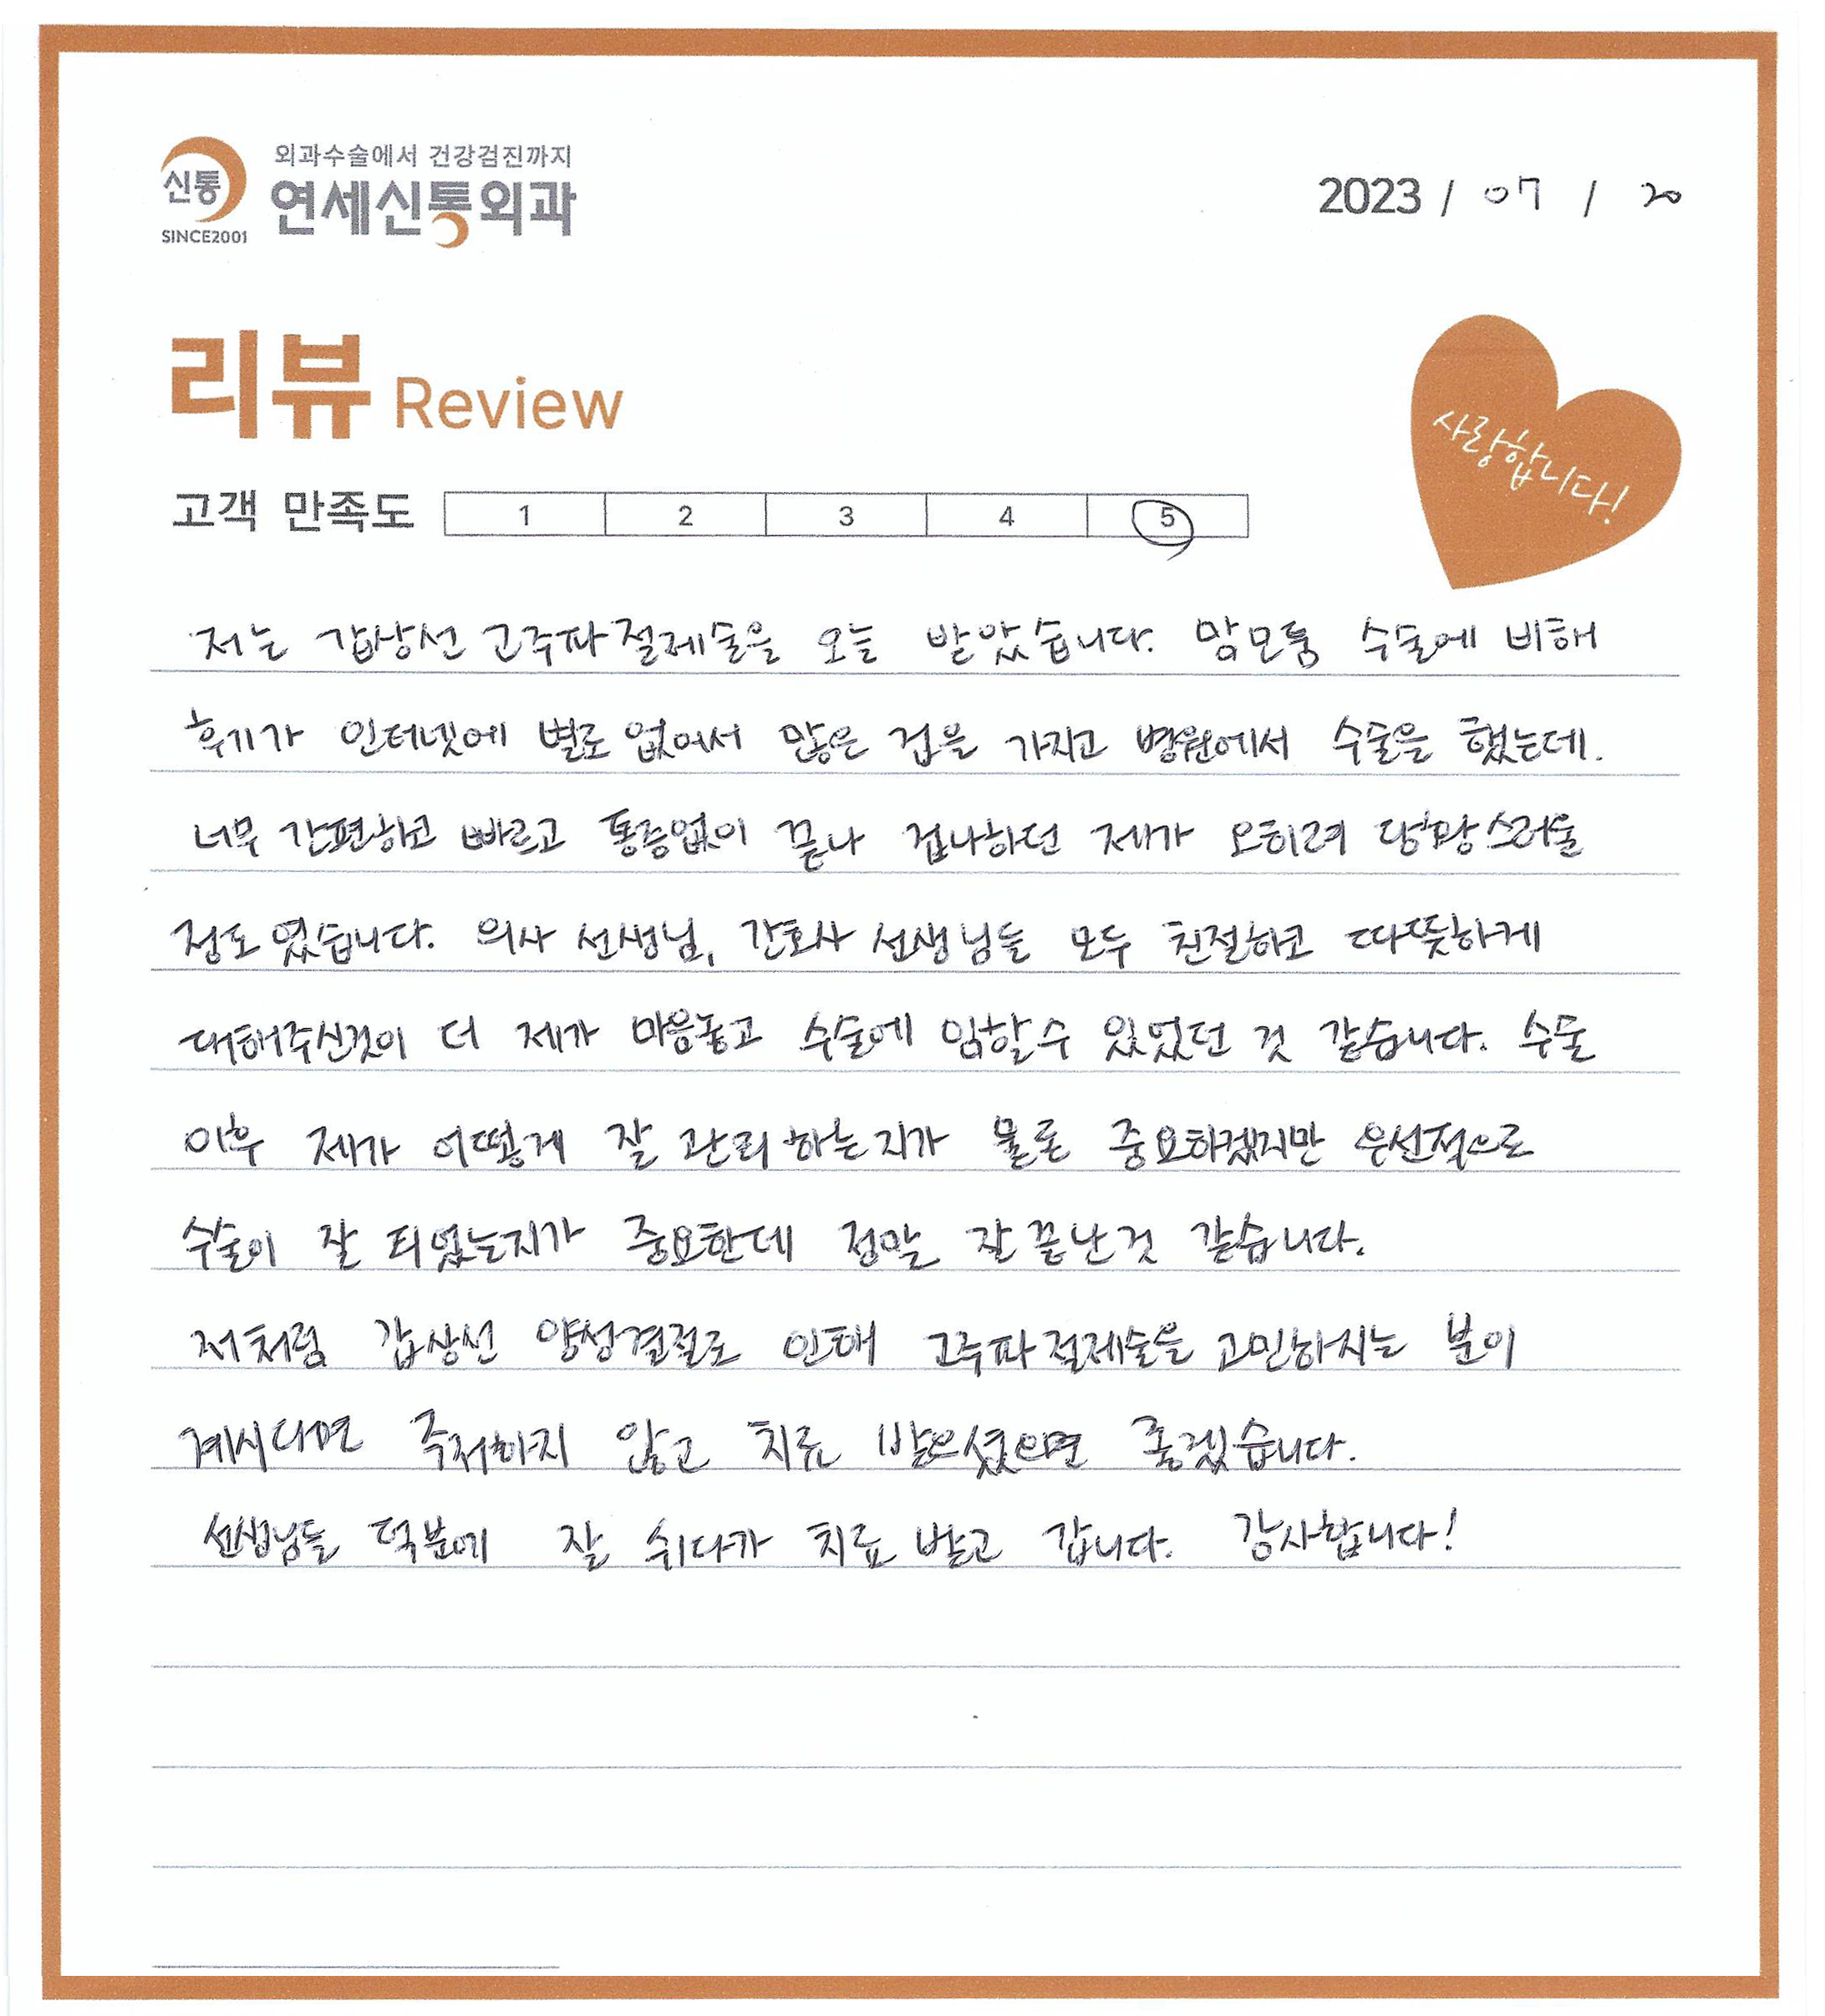 신통
SINCE2001
외과수술에서 건강검진까지
연세신통외과
2023 / 07 / 20
리뷰 Review
사랑합니다!
고객 만족도 1 2 3 4 5
저는 갑상선 고주파절제술을 오늘 받았습니다. 맘모톰 수술에 비해
후기가 인터넷에 별로 없어서 많은 겁을 가지고 병원에서 수술을 했는데.
너무 간편하고 빠르고 통증없이 끝나 겁나하던 제가 오히려 당황스러울
정도였습니다. 의사 선생님, 간호사 선생님들 모두 친절하고 따뜻하게
대해주신것이 더 제가 마음놓고 수술에 임할수 있었던 것 같습니다. 수술
이후 제가 어떻게 잘 관리하는지가 물론 중요하겠지만 우선적으로
수술이 잘 되었는지가 중요한데 정말 잘 끝난것 같습니다.
저처럼 갑상선 양성결절로 인해 고주파절제술을 고민하시는 분이
계시다면 주저하지 않고 치료 받으셨으면 좋겠습니다.
선생님들 덕분에 잘 쉬다가 치료 받고 갑니다. 감사합니다!